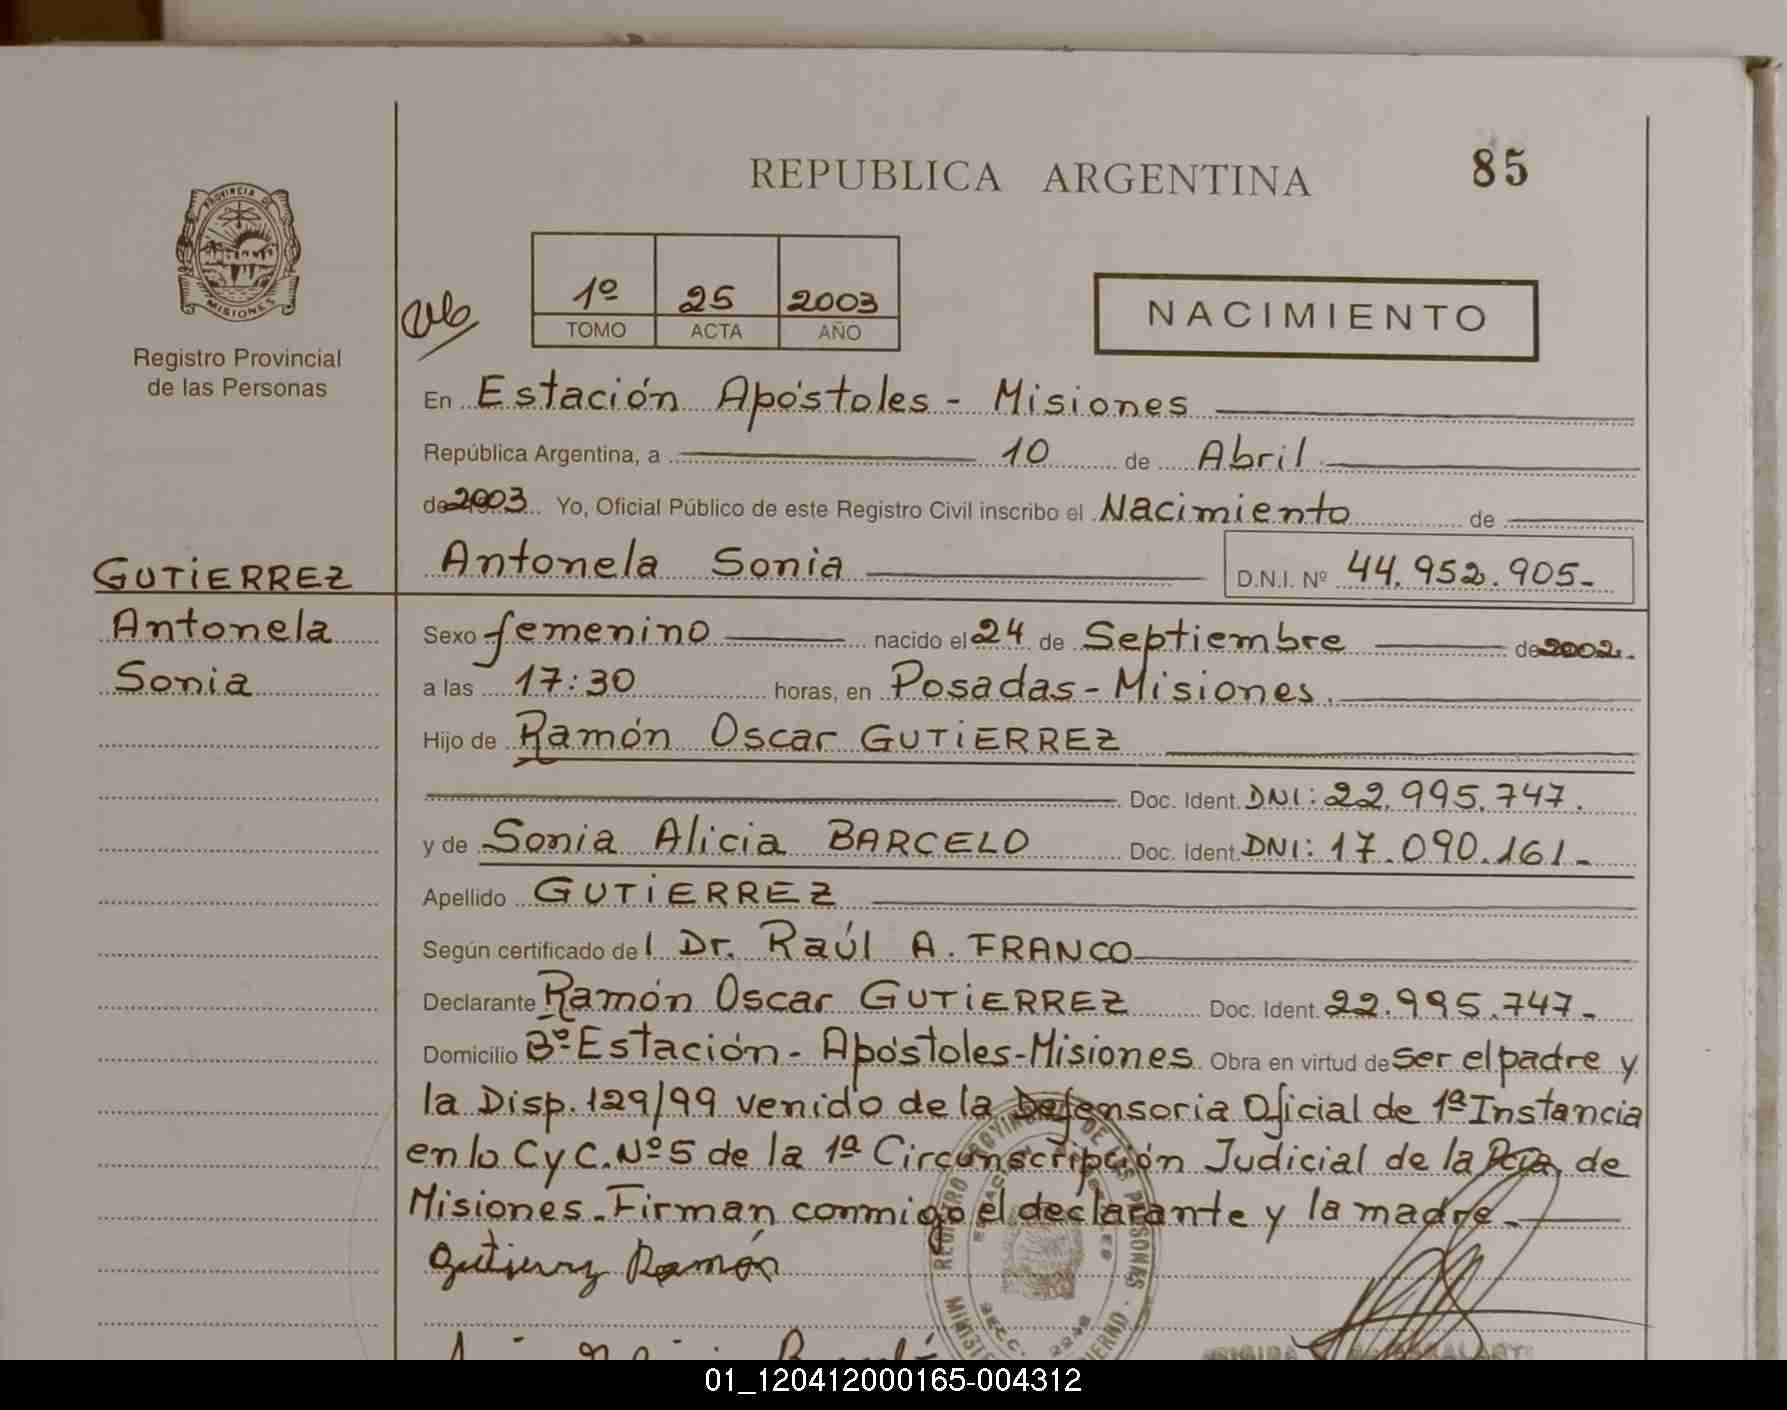 REPUBLICA ARGENTINA
85
PROVINCIA DE
MISIONES
Registro Provincial
de las Personas
1º 25 2003
TOMO ACTA AÑO
NACIMIENTO
En Estación Apóstoles - Misiones
República Argentina, a 10 de Abril
de 2003 Yo, Oficial Público de este Registro Civil inscribo el Nacimiento de
Antonela Sonia D.N.I. Nº 44.952.905-
GUTIERREZ
Antonela
Sonia
Sexo femenino nacido el 24 de Septiembre de 2002.
a las 17:30 horas, en Posadas - Misiones.
Hijo de Ramón Oscar GUTIERREZ
Doc. Ident. DNI: 22.995.747.
y de Sonia Alicia BARCELO Doc. Ident. DNI: 17.090.161-
Apellido GUTIERREZ
Según certificado del Dr. Raúl A. FRANCO
Declarante Ramón Oscar GUTIERREZ Doc. Ident. 22.995.747-
Domicilio Bº Estación - Apóstoles - Misiones Obra en virtud de ser el padre y
la Disp. 129/99 venido de la Defensoria Oficial de 1ª Instancia
en lo C y C. Nº 5 de la 1ª Circunscripción Judicial de la Pcia. de
Misiones. Firman conmigo el declarante y la madre.-
Gutierrez Ramón
01_120412000165-004312